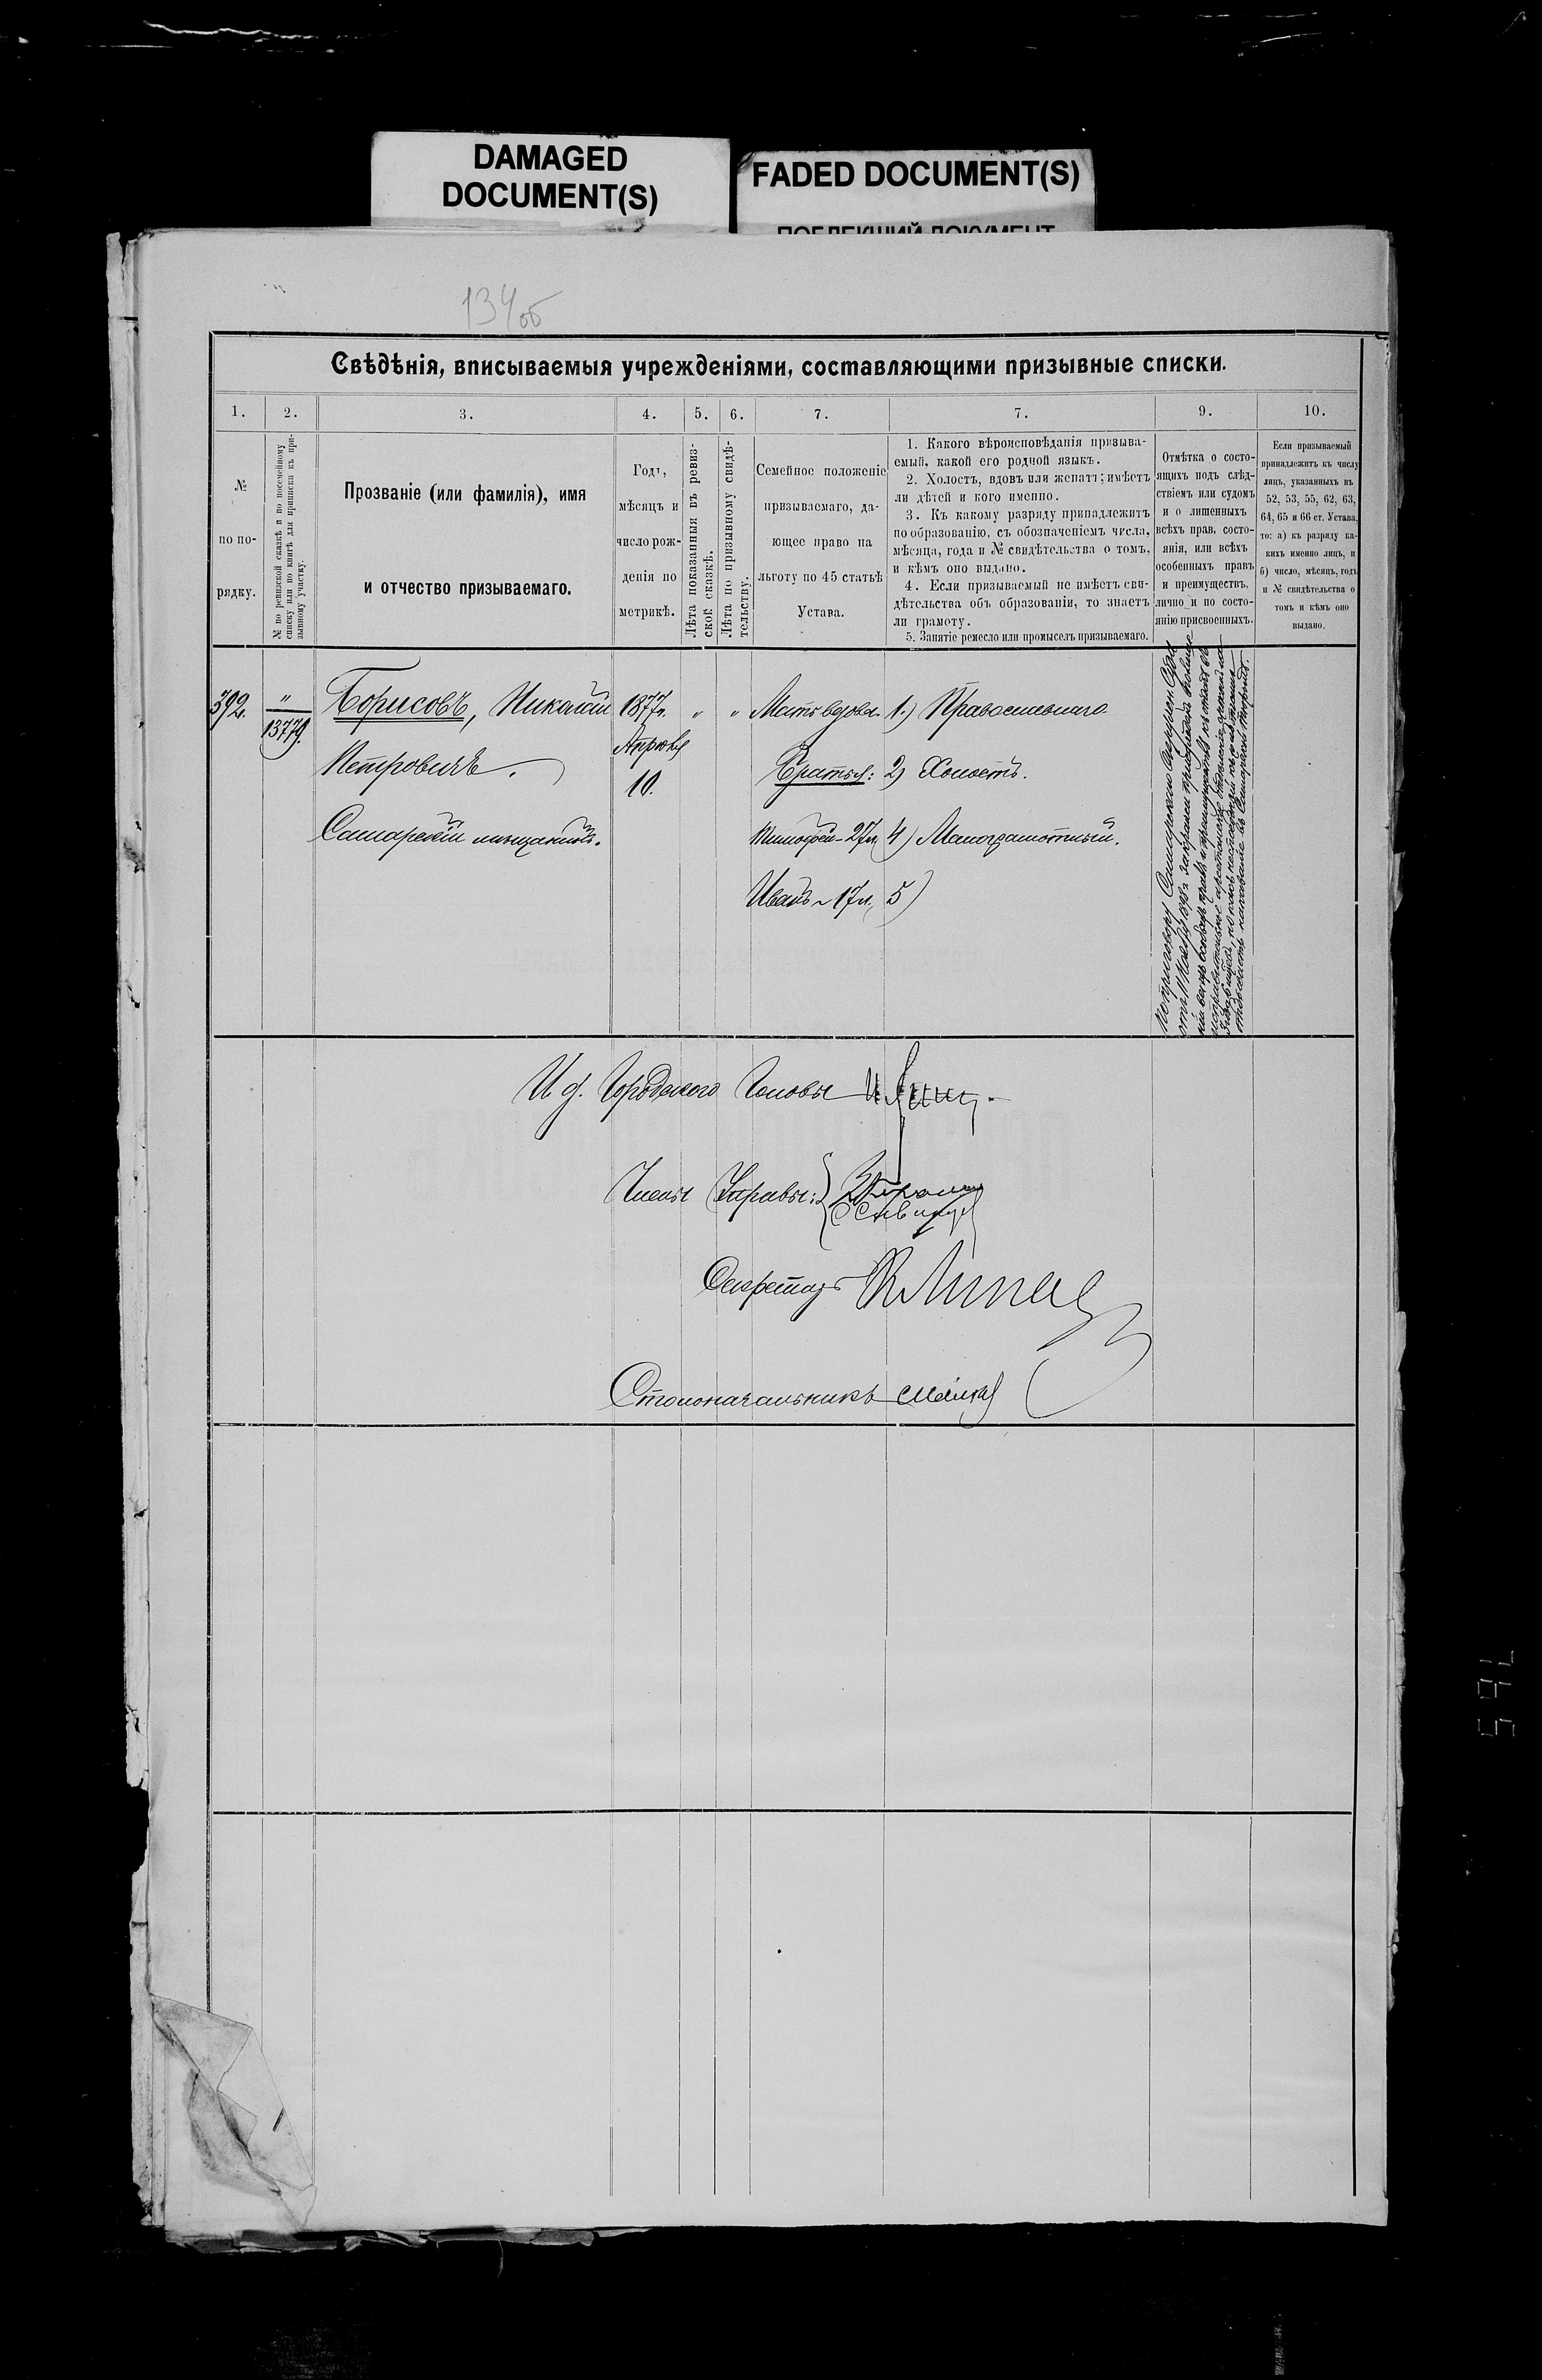 DAMAGED
DOCUMENT(S)
FADED DOCUMENT(S)
ПОБЛЕКШИЙ ДОКУМЕНТ
134об
Свѣдѣнія, вписываемыя учрежденіями, составляющими призывные списки.
1.
2.
3.
4.
5.
6.
7.
7.
9.
10.
№
по по-
рядку.
№ по ревизской сказкѣ и по посемейному
списку или по книгѣ для приписки къ при-
зывному участку.
Прозваніе (или фамилія), имя
и отчество призываемаго.
Годъ,
мѣсяцъ и
число рож-
денія по
метрикѣ.
Лѣта показанныя въ ревиз-
ской сказкѣ.
Лѣта по призывному свидѣ-
тельству.
Семейное положеніе
призываемаго, да-
ющее право на
льготу по 45 статьѣ
Устава.
1. Какого вѣроисповѣданія призыва-
емый, какой его родной языкъ.
2. Холостъ, вдовъ или женатъ; имѣетъ
ли дѣтей и кого именно.
3. Къ какому разряду принадлежитъ
по образованію, съ обозначеніемъ числа,
мѣсяца, года и № свидѣтельства о томъ,
и кѣмъ оно выдано.
4. Если призываемый не имѣетъ сви-
дѣтельства объ образованіи, то знаетъ
ли грамоту.
5. Занятіе ремесло или промыселъ призываемаго.
Отмѣтка о состо-
ящихъ подъ слѣд-
ствіемъ или судомъ
и о лишенныхъ
всѣхъ прав, состо-
янія, или всѣхъ
особенныхъ правъ
и преимуществ,
лично и по состо-
янію присвоенныхъ.
Если призываемый
принадлежитъ къ числу
лицъ, указанныхъ въ
52, 53, 55, 62, 63,
64, 65 и 66 ст. Устава,
то: а) къ разряду ка-
кихъ именно лицъ, и
б) число, мѣсяцъ, годъ
и № свидѣтельства о
томъ и кѣмъ оно
выдано.
392.
"
13779.
Борисовъ, Николай
Петровичъ.
Самарскій мѣщанинъ.
1877г.
Апрѣля
10.
"
"
Мать вдова.
Братья:
Тимофей - 27л.
Иванъ - 17л.
1.) Православнаго
2) Холостъ.
4) Малограмотный.
5)
По приговору Самарскаго Окружн. Суда
И д. Городского Головы
Члены Управы:
Секретарь
Столоначальникъ